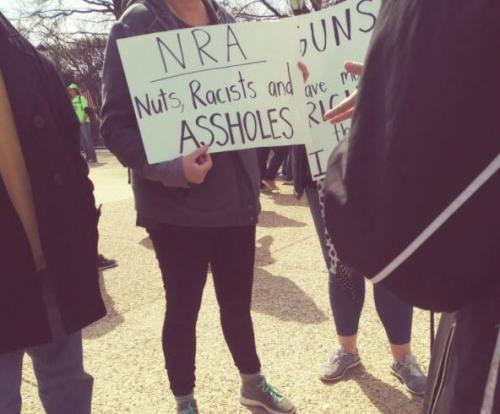 NRA
Nuts, Racists and
ASSHOLES
GUNS
ave
I